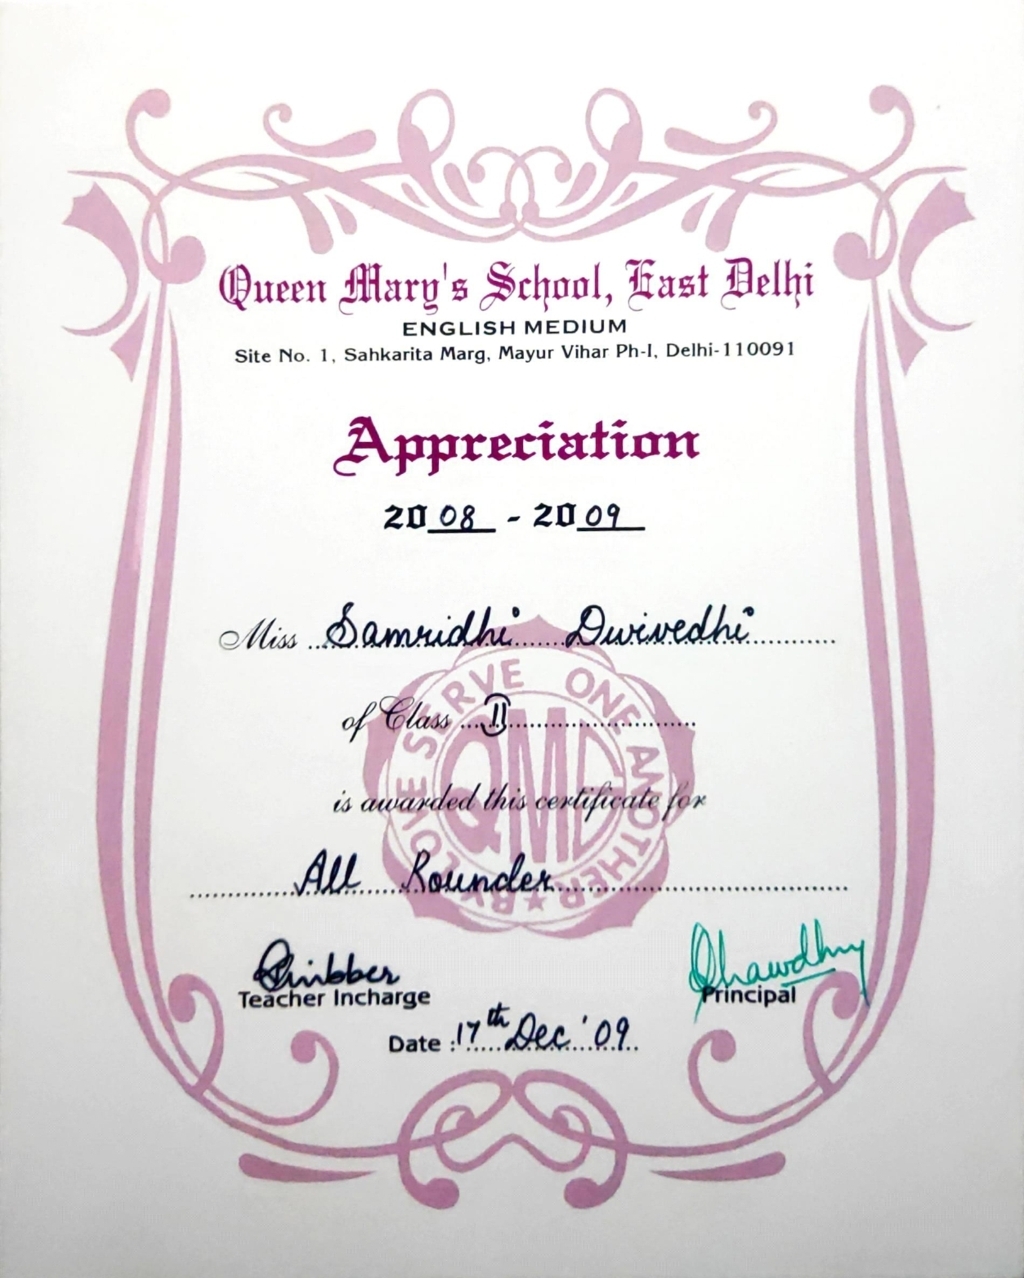 Queen Mary's School, East Delhi
ENGLISH MEDIUM
Site No. 1, Sahkarita Marg, Mayur Vihar Ph-I, Delhi-110091
Appreciation
2008 - 2009
Miss Samridhi Dwivedhi
of Class II
is awarded this certificate for
All Rounder
BY LOVE SERVE ONE ANOTHER
QMC
Chibber
Teacher Incharge
Chawdhry
Principal
Date : 17th Dec '09